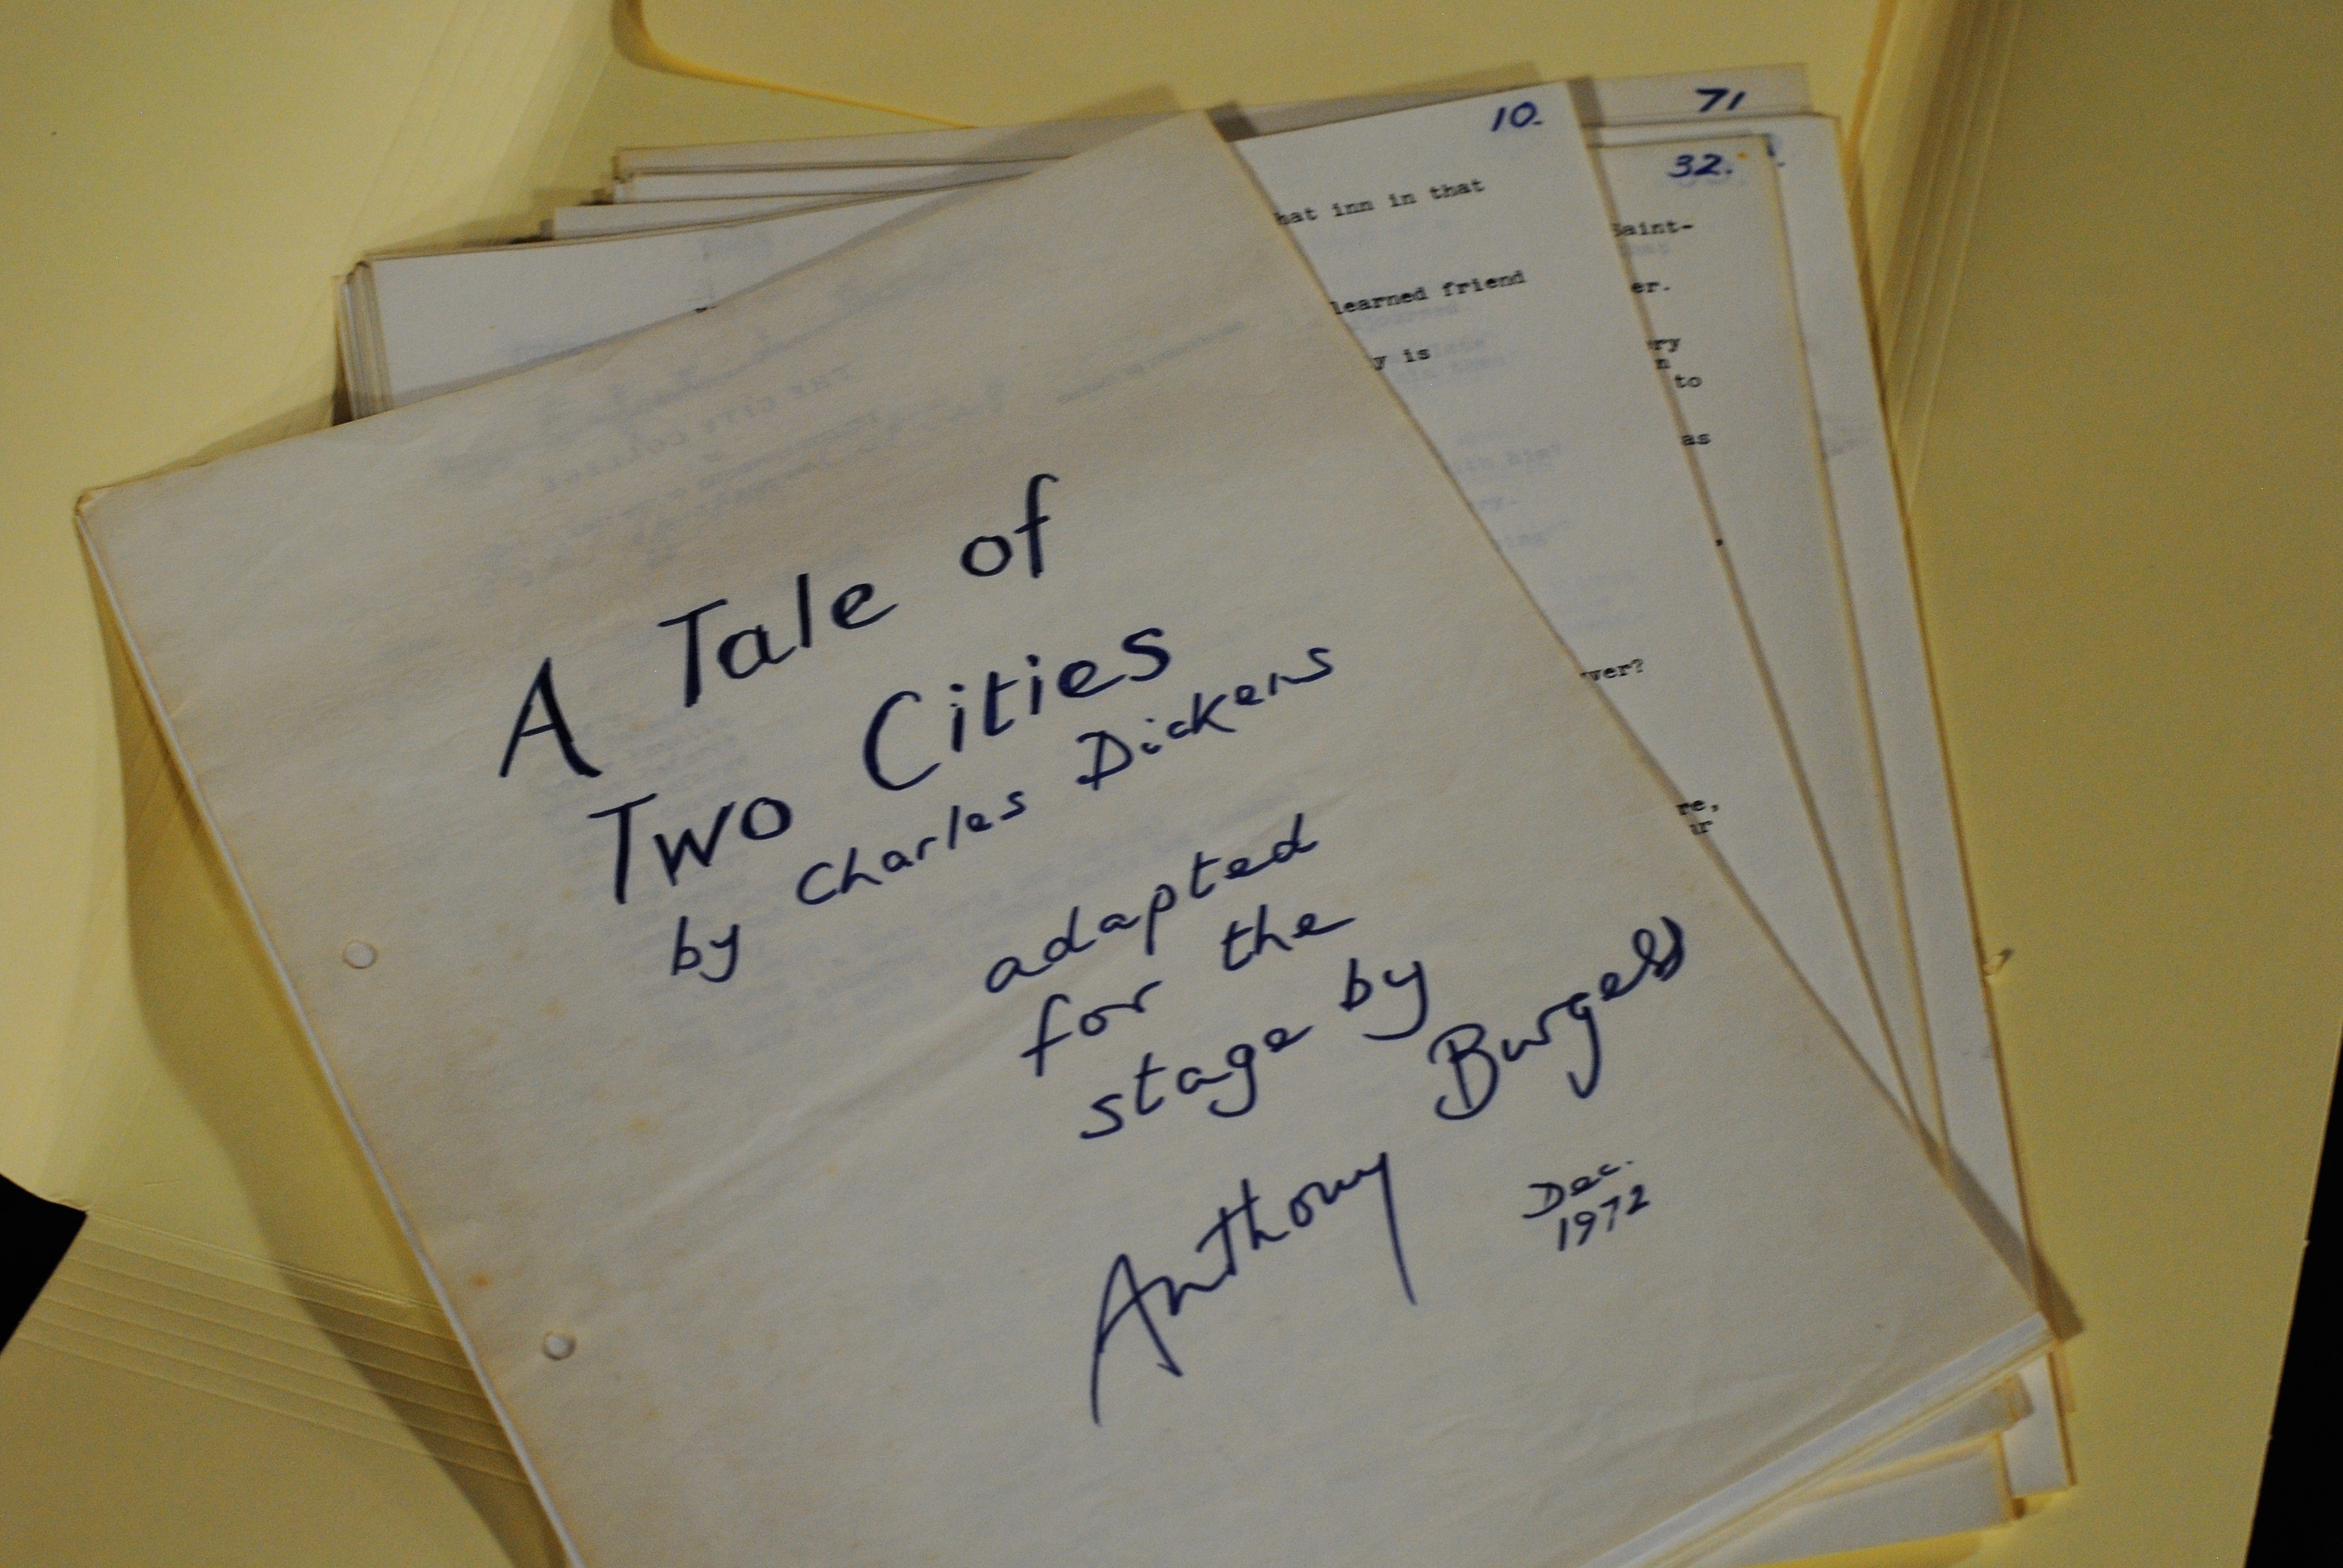 A Tale of
Two Cities
by Charles Dickens
adapted
for the
stage by
Anthony Burgess
Dec.
1972
10.
hat inn in that
learned friend
y is
ver?
71
32.
Saint-
er.
ry
n
to
as
re,
ur